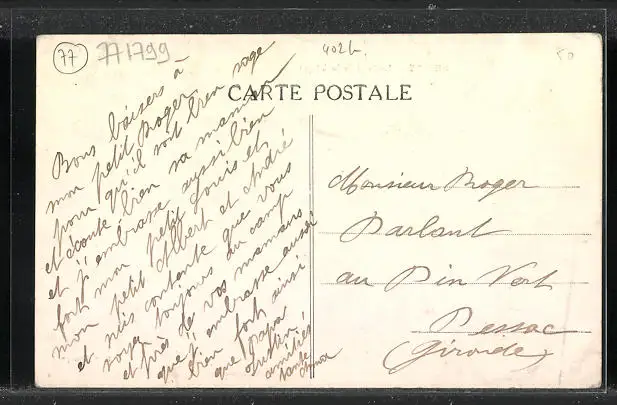 77
771799
402h
50
CARTE POSTALE
Bons baisers à
mon petit Roger
pour qu'il soit bien sage
et écoute bien sa maman
et j'embrasse aussi bien
fort mon petit Louis et
mon petit Albert et André
et suis contente que vous
soyez toujours au camp
et près de vos mamans
que j'embrasse aussi
bien fort ainsi
que Papa
amitiés
tante
Monsieur Roger
Parlant
au Pin Vert
Pessac
(Gironde)